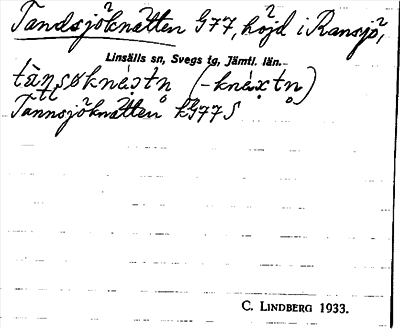 Tandsjöknätten G77, höjd i Ransjö,
Linsälls sn, Svegs tg, Jämtl. län.
Tannsjöknätten kG77 S
C. LINDBERG 1933.